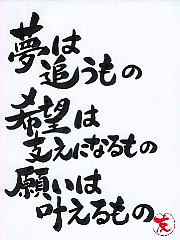 夢は
追うもの
希望は
支えになるもの
願いは
叶えるもの
友